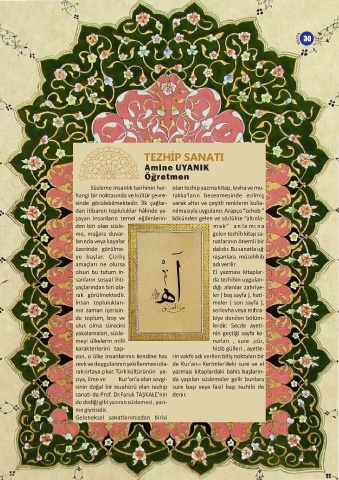 30
TEZHİP SANATI
Amine UYANIK
Öğretmen
Süsleme insanlık tarihinin her-
hangi bir noktasında ve kültür çevre-
sinde görülebilmektedir. İlk çağlar-
dan itibaren topluluklar hâlinde ya-
şayan insanların temel eğilimlerin-
den biri olan süsle-
me, mağara duvar-
larında veya kayalar
üzerinde görülme-
ye başlar. Çizilis
amaçları ne olursa
olsun bu tutum in-
sanların sosyal ihti-
yaçlarından biri ola-
rak görülmektedir.
İnsan toplulukları-
nın zaman içerisin-
de toplum, boy ve
ulus olma sürecini
yakalamaları, süsle-
meyi ülkelerin millî
karakterlerini taşı-
yan, o ülke insanlarının kendine has
zevk ve duygularının şekillenmesi ola-
rak ortaya çıkar. Türk kültürünün ya-
pıya, ilme ve Kur'an'a olan sevgi-
sinin doğal bir tezahürü olan tezhip
sanatı da Prof. Dr. Faruk TAŞKALE'nin
de dediği gibi yazının süslemesi, yazı-
nın giysisidir.
Geleneksel sanatlarımızdan birisi
olan tezhip yazma kitap, levha ve mu-
rakka'ların bezenmesinde ezilmiş
varak altın ve çeşitli renklerin kulla-
nılmasıyla uygulanır. Arapça "zeheb"
kökünden gelen ve sözlükte "altınla-
mak" anlamına
gelen tezhîb kitap sa-
natlarının önemli bir
dalıdır. Bu sanatla uğ-
raşanlara müzehhib
adı verilir.
El yazması kitaplar-
da tezhibin uygulan-
dığı alanlar zahriye-
ler ( baş sayfa ), hati-
meler ( son sayfa ),
serlevha veya mihra-
biye denilen bölüm-
lerdir. Secde ayeti-
nin geçtiği sayfa ke-
narları , sure ,cüz,
hizib gülleri , ayetle-
rin vakfe adı verilen bitiş noktaları bir
de Kur'an-ı Kerimler'deki sure ve el
yazması kitaplardaki bahis başların-
da yapılan süslemeler gelir bunlara
sure başı veya fasıl başı tezhibi de
denir.